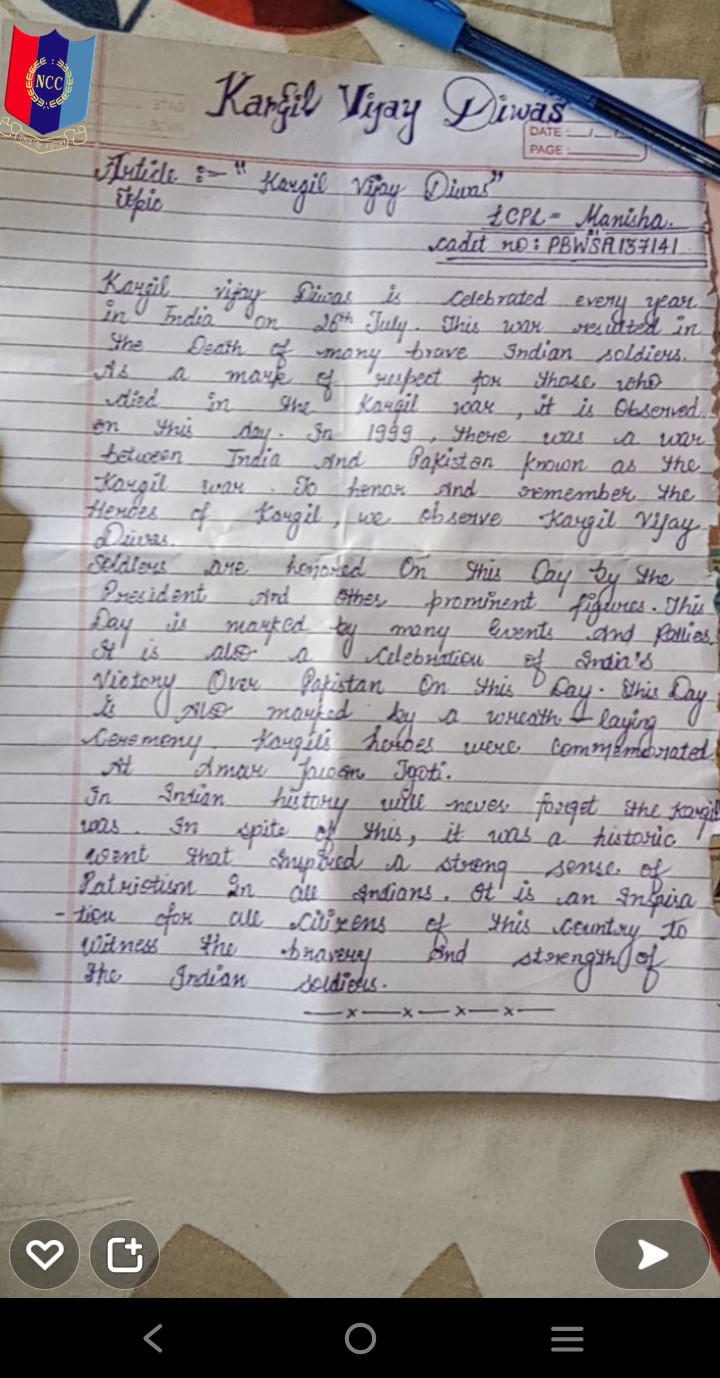 NCC
Kargil Vijay Diwas
DATE :
PAGE :
Article :- "Kargil Vijay Diwas"
Topic
LCPL - Manisha.
cadet no : PBWSA137141
Kargil vijay Diwas is celebrated every year
in India on 26th July. This war resulted in
the Death of many brave Indian soldiers.
As a mark of respect for those who
died in the Kargil war, it is Observed
on this day. In 1999, there was a war
between India And Pakistan known as the
Kargil war. To honor And remember the
Heroes of Kargil, we observe Kargil Vijay
Diwas.
Soldiers are honored On this Day by the
President And other prominent figures. This
Day is marked by many Events And Rallies.
It is also a celebration of India's
Victory Over Pakistan On this Day. This Day
is Also marked by a wreath-laying
Ceremony. Kargil's heroes were commemorated
At Amar Jawan Jyoti.
In Indian history will never forget the Kargil
was. In spite of this, it was a historic
event that inspired a strong sense of
Patriotism In all Indians. It is an Inspira
-tion for all citizens of this country to
witness the bravery And strength of
the Indian soldiers.
—x—x—x—x—